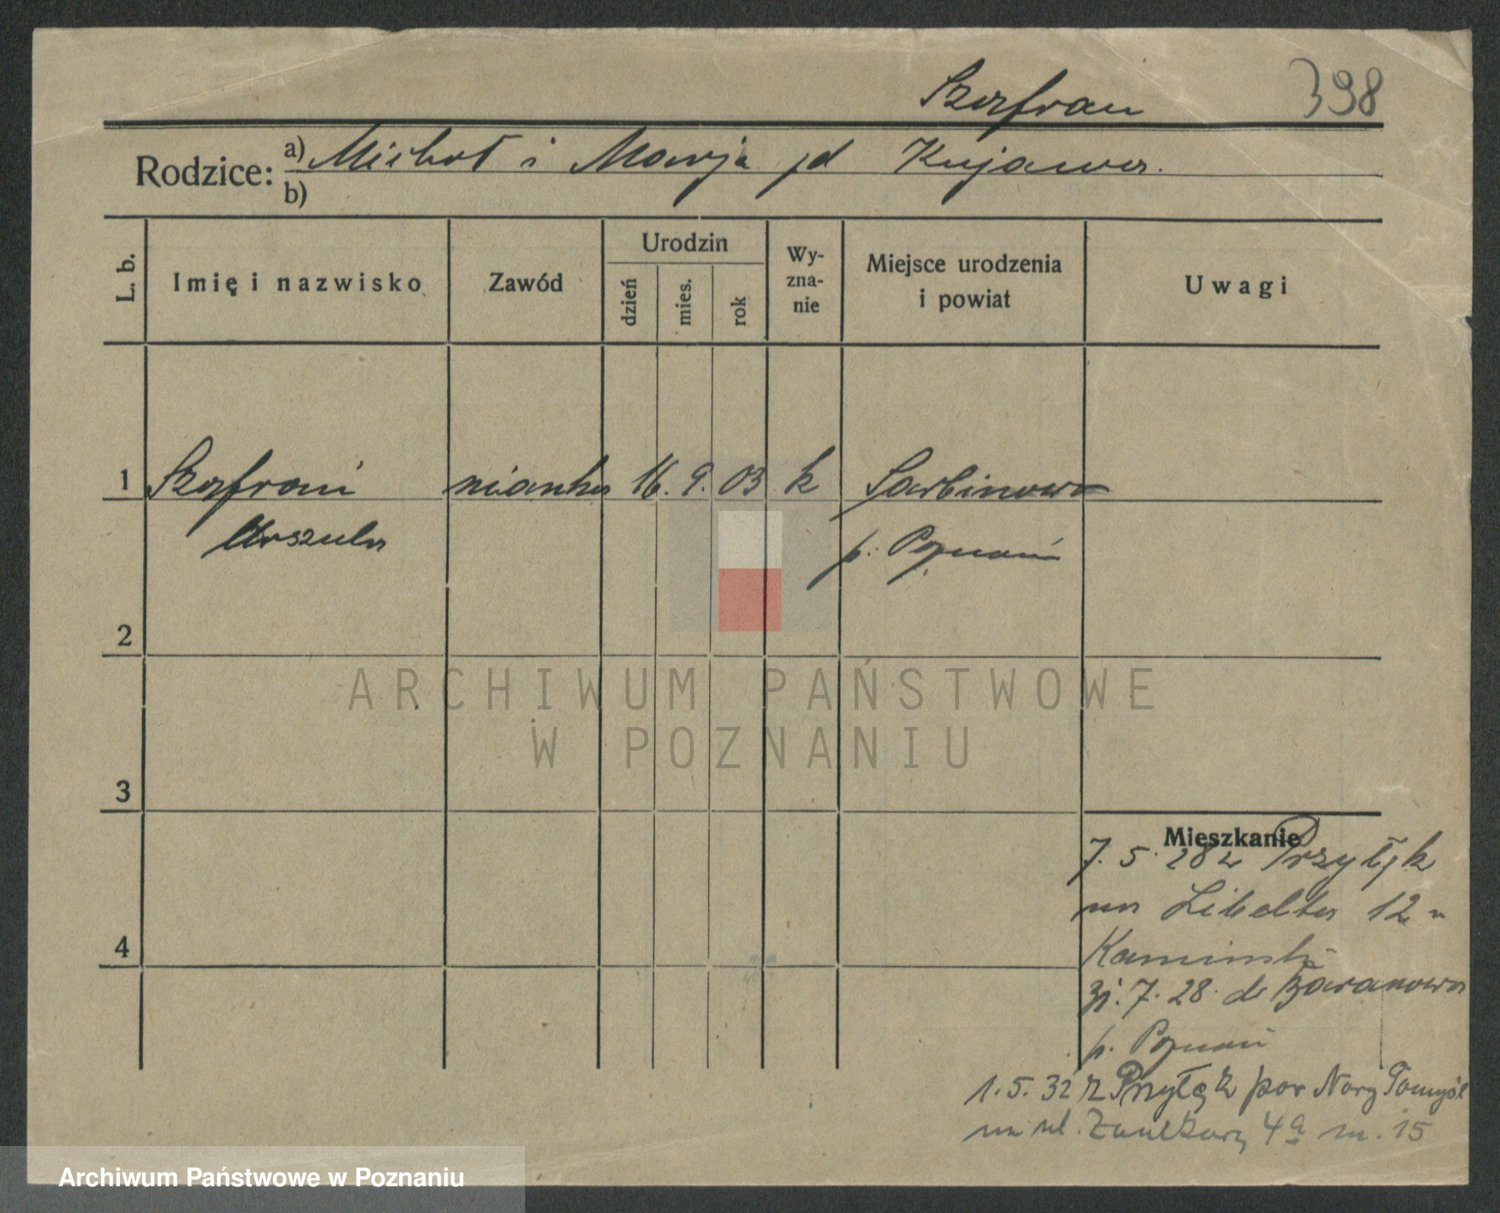 Szafran 398
Rodzice: a) Michał i Marja pd Kujawa.
b)
L. b. Imię i nazwisko Zawód Urodzin dzień mies. rok Wy-zna-nie Miejsce urodzenia i powiat Uwagi
1 Szafran nianka 16. 9. 03 k Sarbinowo
Urszula p. Poznań
2
ARCHIWUM PAŃSTWOWE
W POZNANIU
3
Mieszkanie
7. 5. 28 z Przyłęk
na Libelta 12 u
Kamiński
7. 28. do Baranowa
p. Poznań
4
1. 5. 32 z Przyłęk pow Nowy Tomyśl
na ul. 4a m. 15
Archiwum Państwowe w Poznaniu